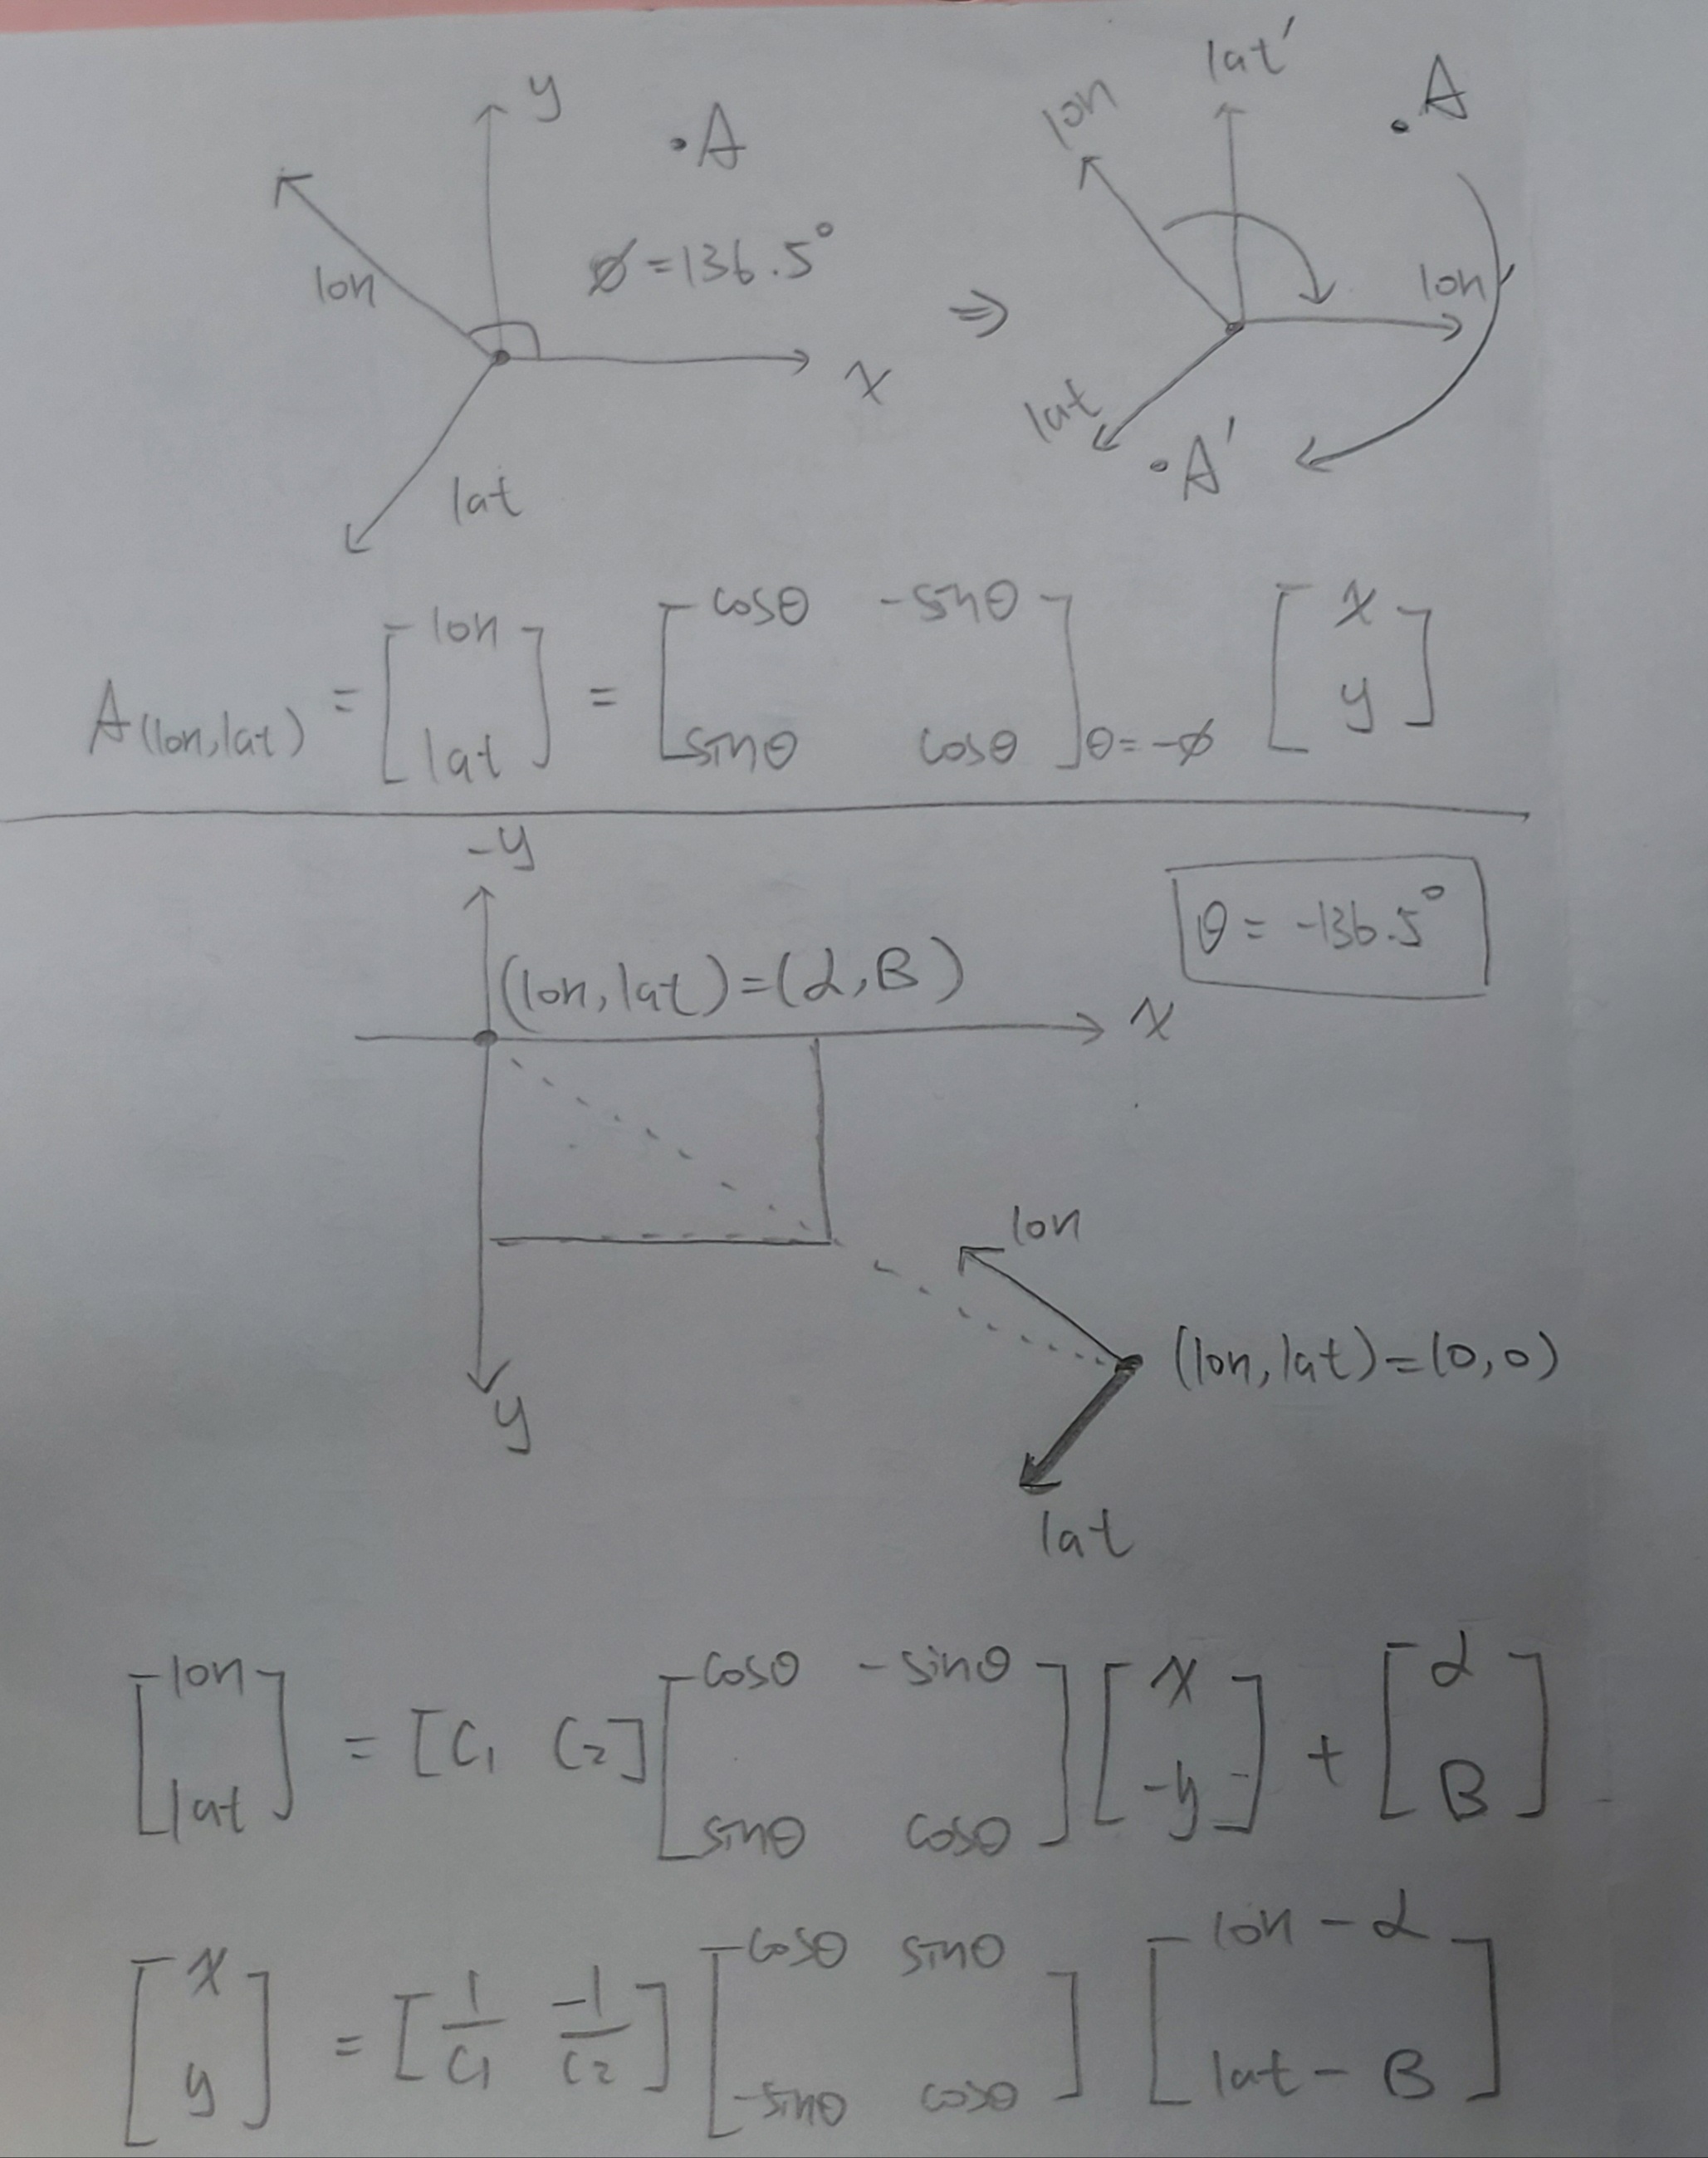 y
.A
lon
ø=136.5°
x
lat
⇒
lon
lat'
.A
lon'
lat
.A'
A(lon,lat) = [lon lat] = [cosθ -sinθ sinθ cosθ]θ=-ø [x y]
-y
θ = -136.5°
(lon,lat)=(α,B)
x
lon
(lon,lat)=(0,0)
y
lat
[lon lat] = [C1 C2] [cosθ -sinθ sinθ cosθ] [x -y] + [α B]
[x y] = [1/C1 -1/C2] [cosθ sinθ -sinθ cosθ] [lon-α lat-B]